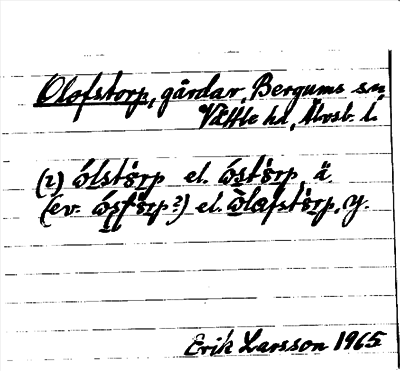 Olofstorp, gårdar, Bergums sn,
Vättle hd, Älvsb. l.
(i) ólstörp el. óstörp, ä.
(ev. óstörp?) el. òlafstörp, y.
Erik Larsson 1965